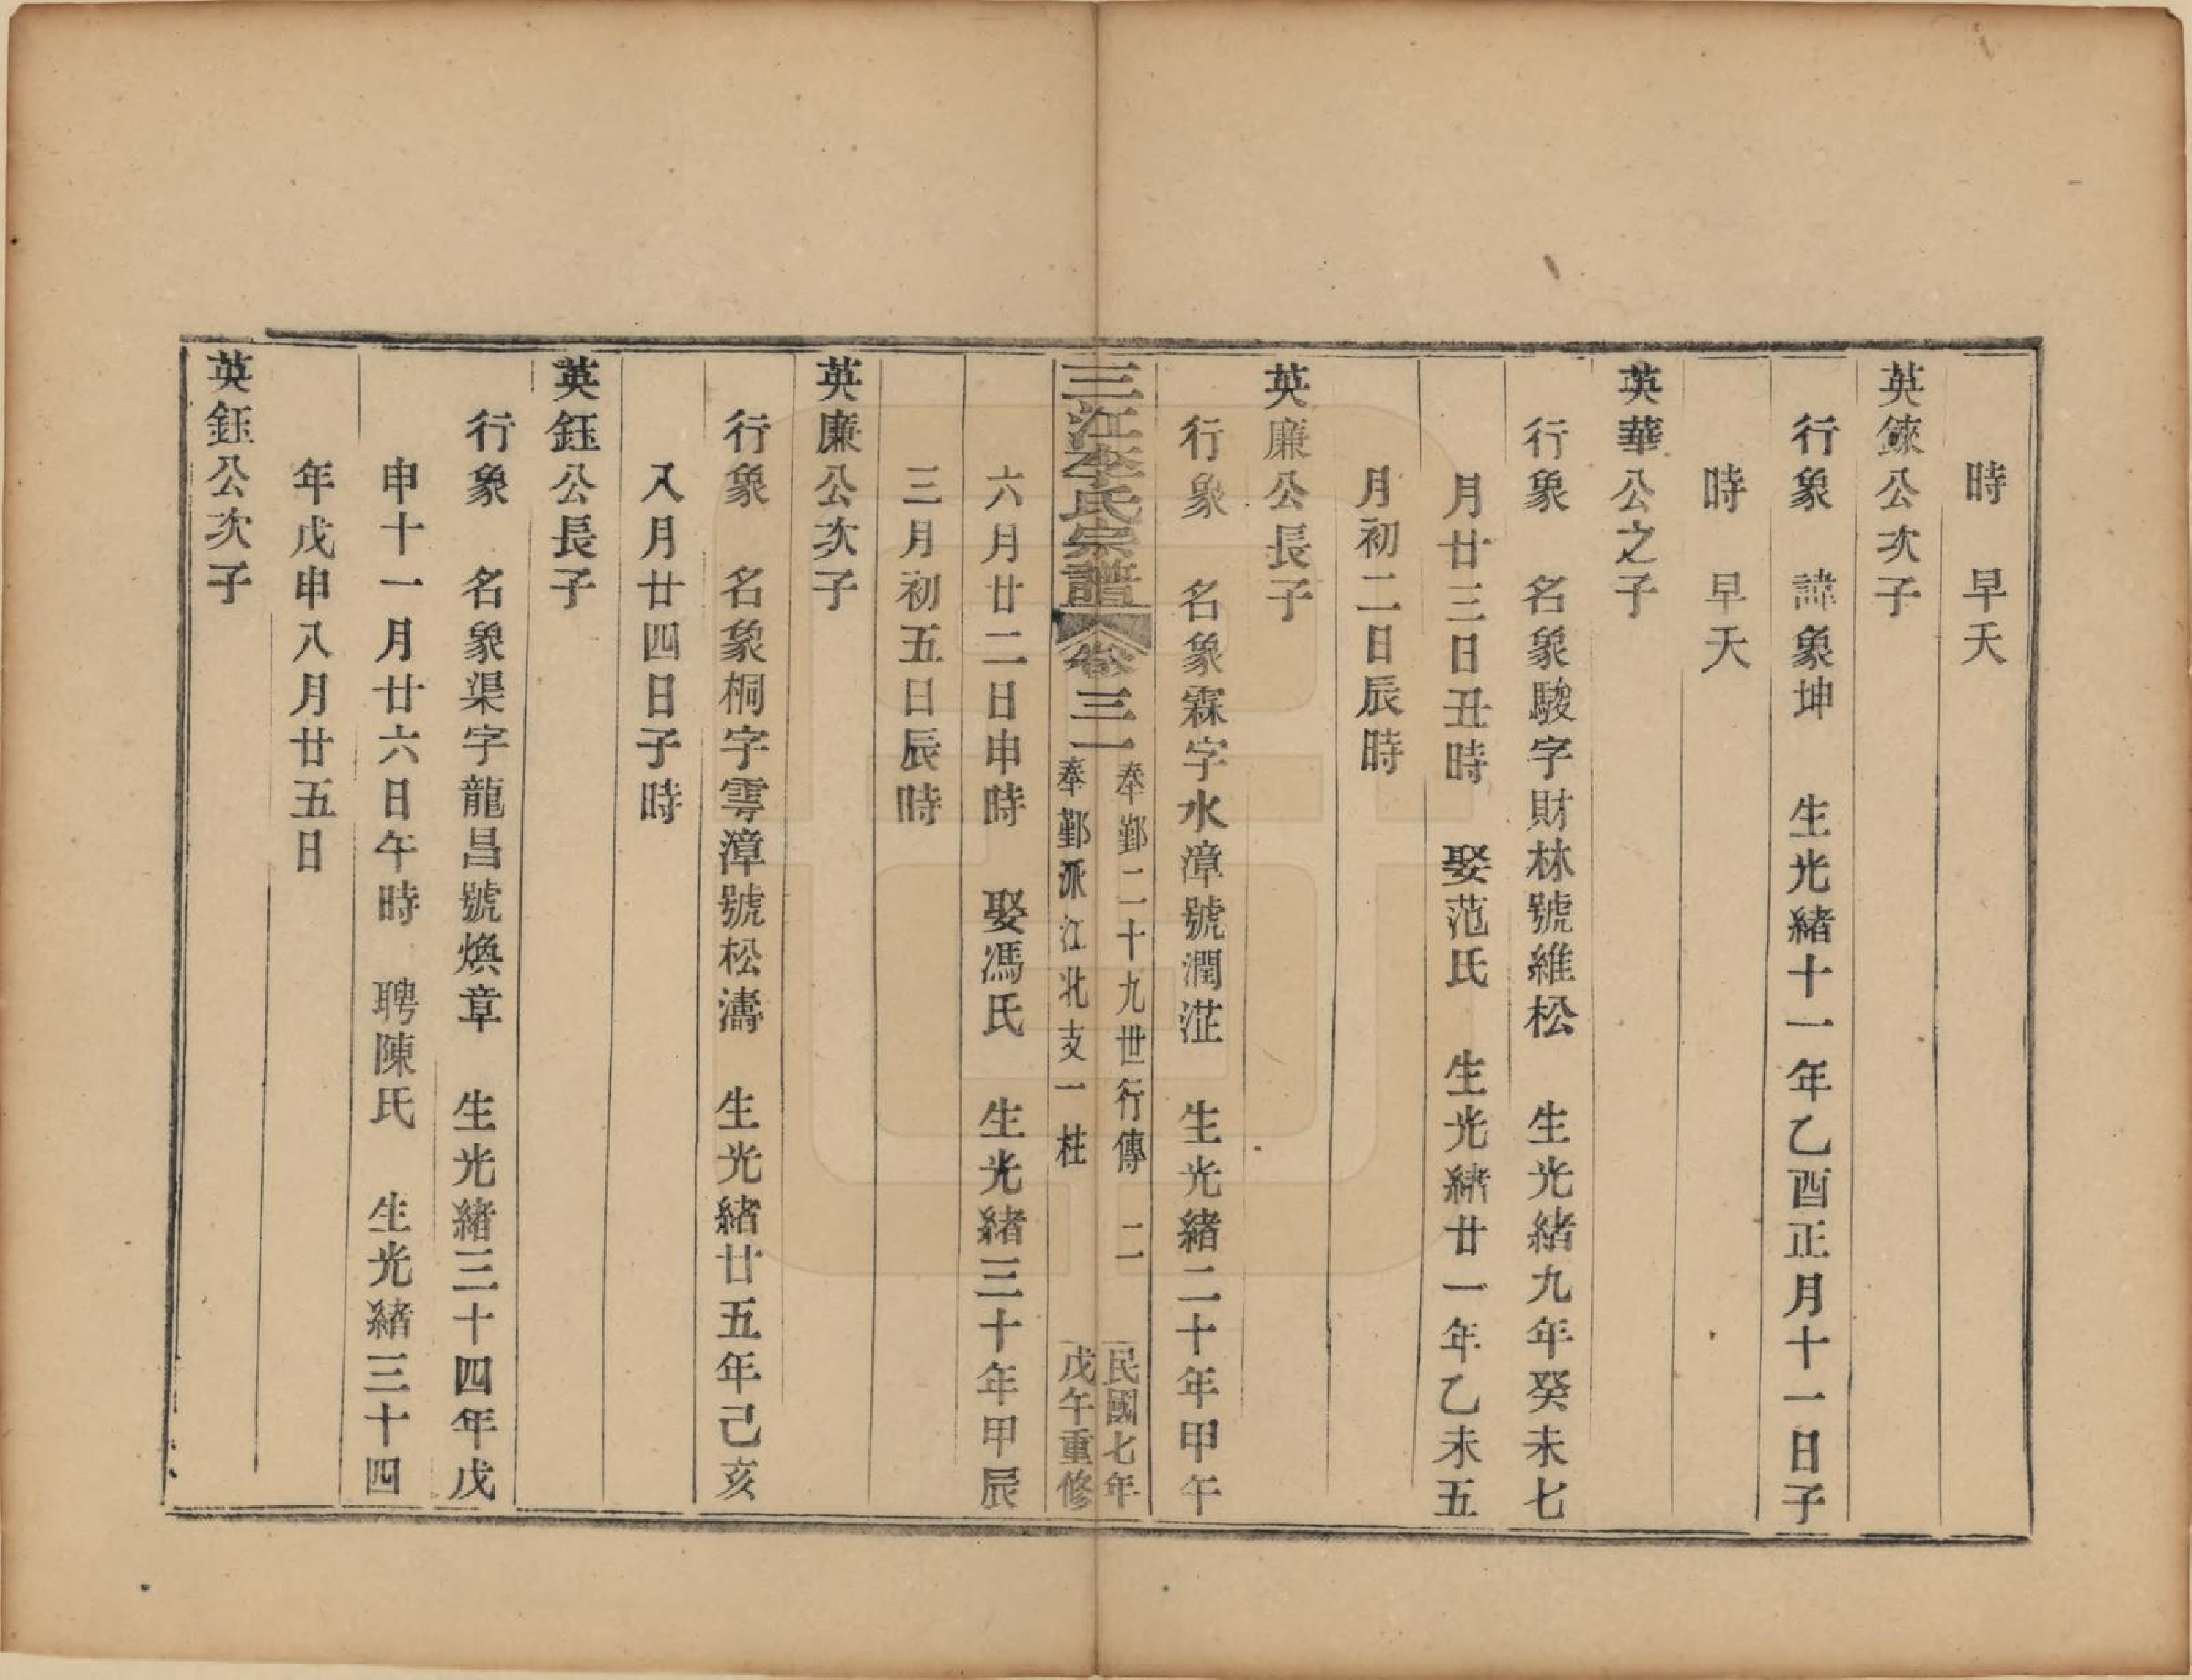 時　早夭
英錸公次子
行象　諱象坤　生光緒十一年乙酉正月十一日子
時　早夭
英華公之子
行象　名象駿字財林號維松　生光緒九年癸未七
月廿三日丑時　娶范氏　生光緒廿一年乙未五
月初二日辰時
英廉公長子
行象　名象霖字水漳號潤漄　生光緒二十年甲午
三江李氏宗譜　卷三一
奉鄞二十九世行傳　二
奉鄞派江北支一柱
民國七年
戊午重修
六月廿二日申時　娶馮氏　生光緒三十年甲辰
三月初五日辰時
英廉公次子
行象　名象桐字雩漳號松濤　生光緒廿五年己亥
八月廿四日子時
英鈺公長子
行象　名象渠字龍昌號煥章　生光緒三十四年戊
申十一月廿六日午時　聘陳氏　生光緒三十四
年戊申八月廿五日
英鈺公次子